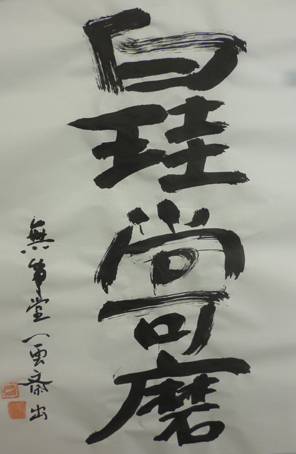 白珪尚可磨
無堂一雲斎出